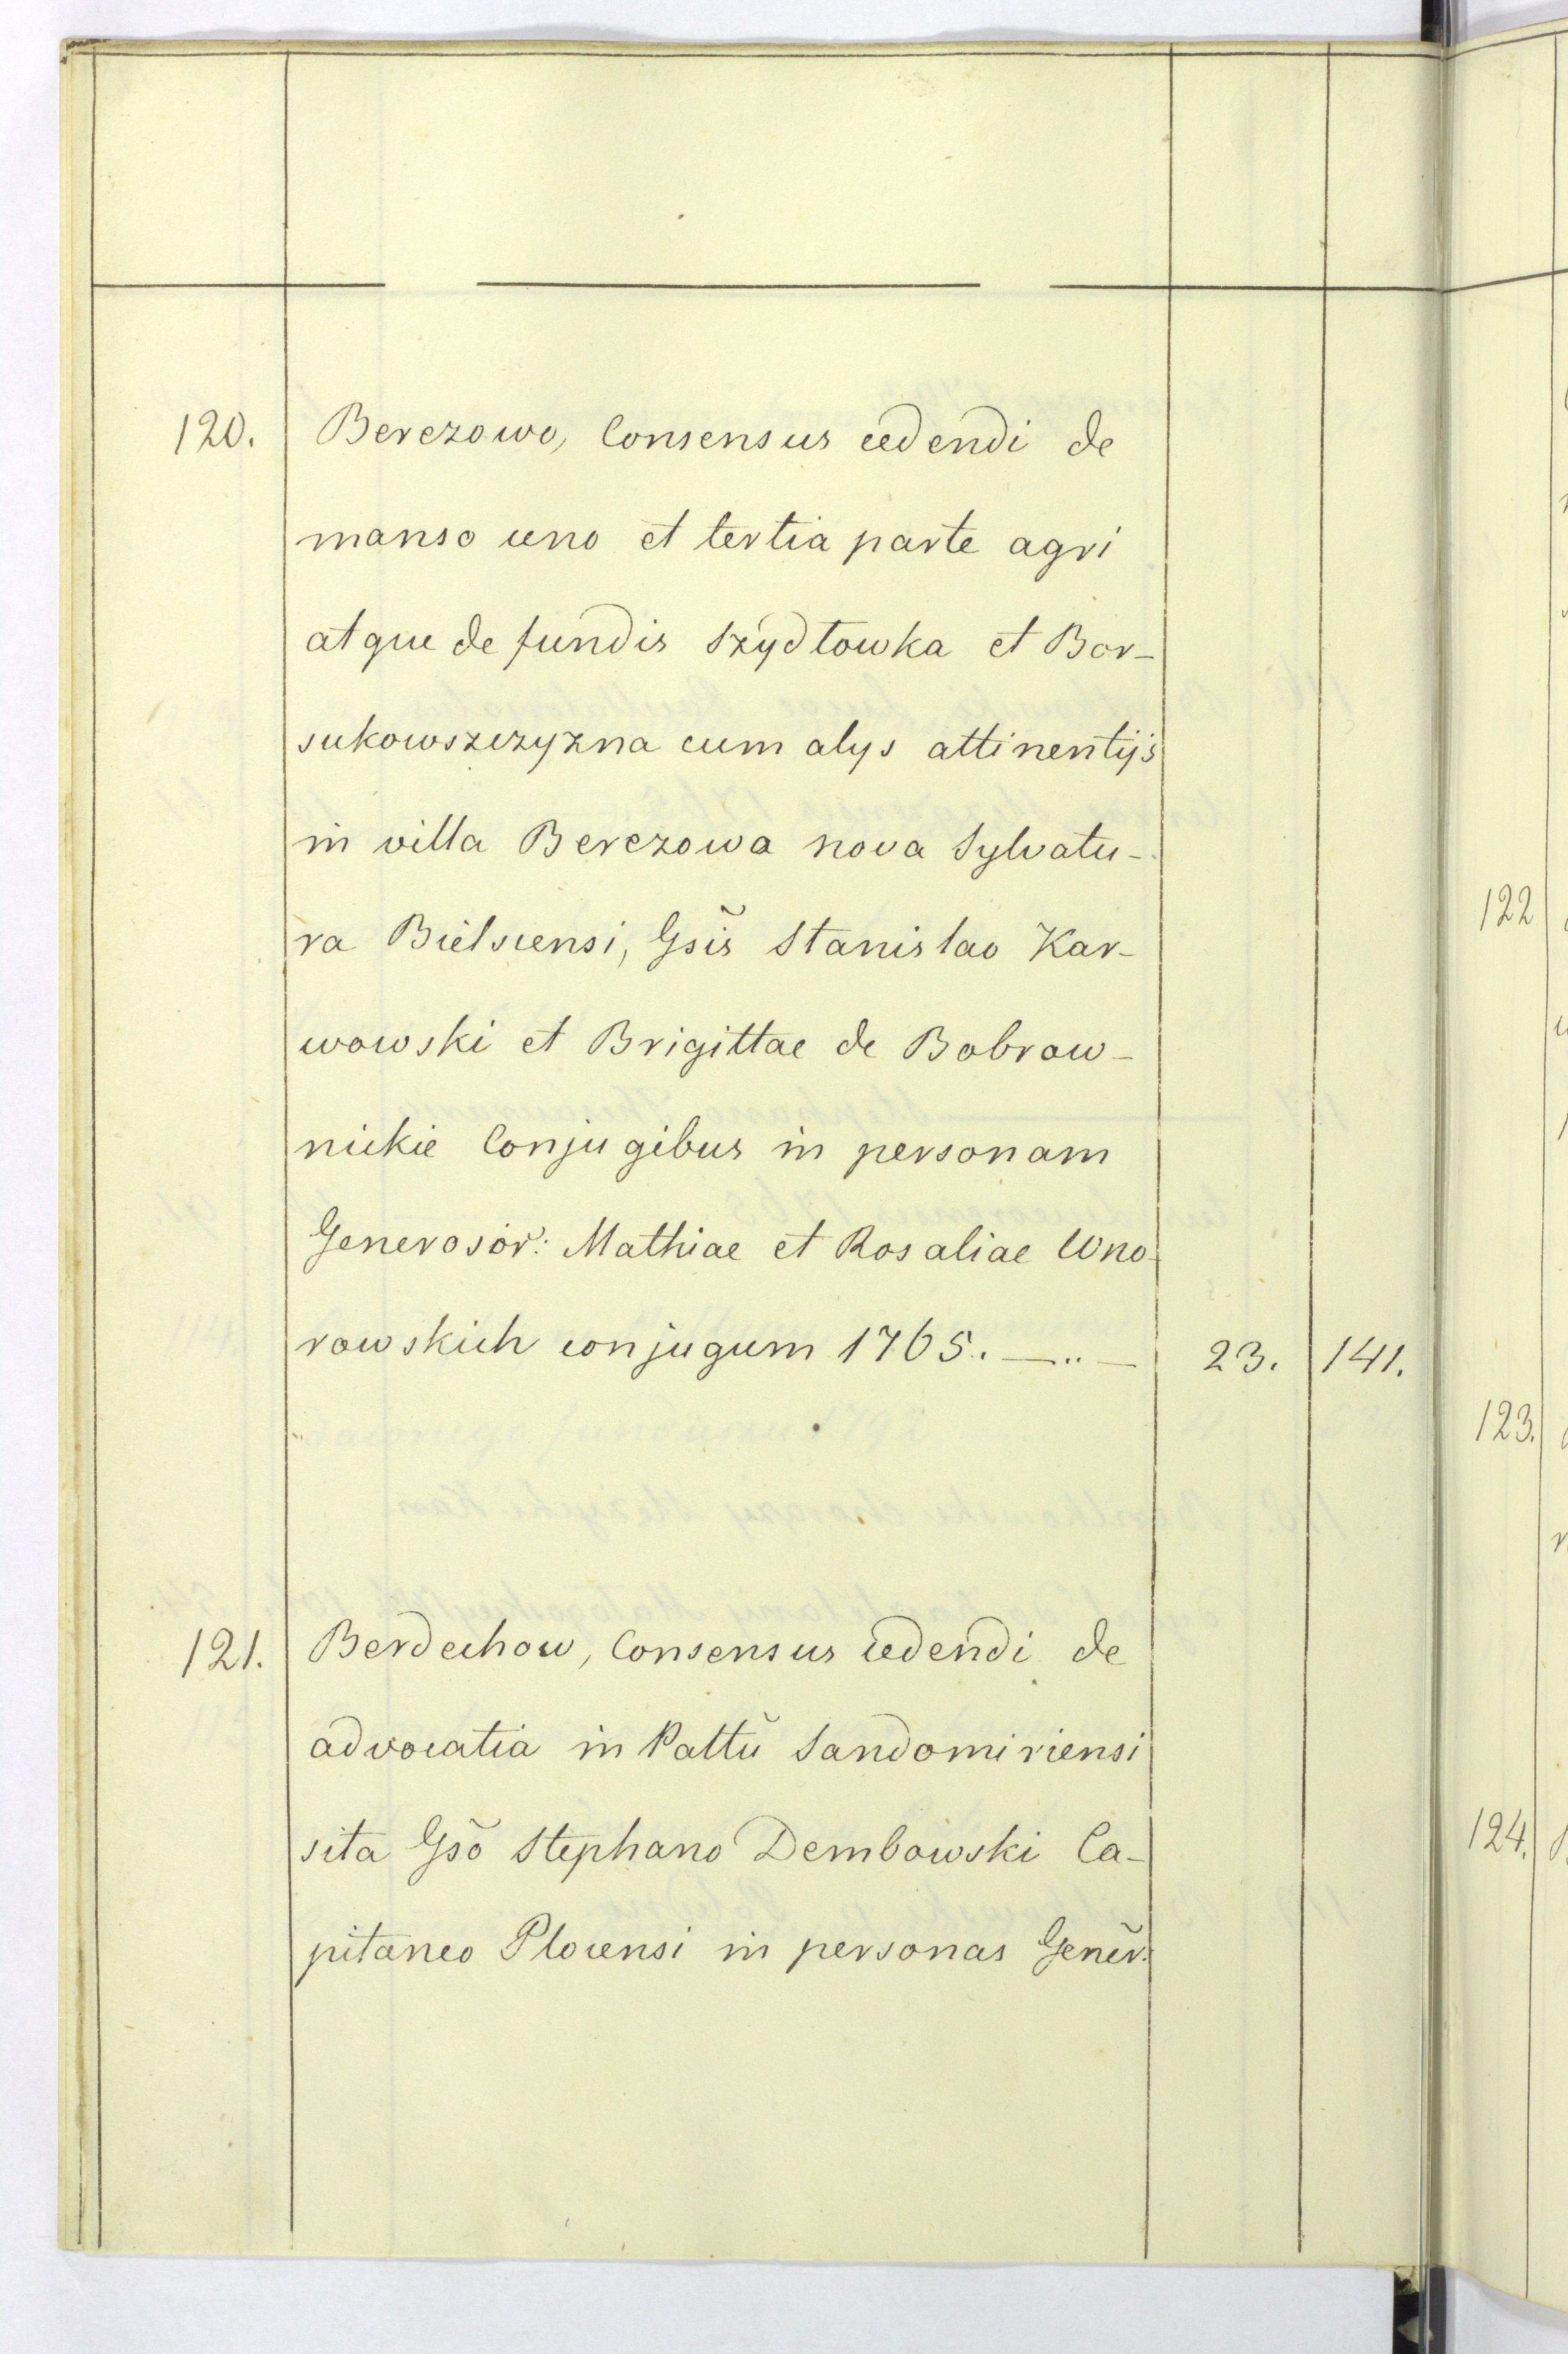 120. Berezowo, Consensus cedendi de
manso uno et tertia parte agri
atque de fundis Szydłowka et Bor-
sukowszczyzna cum alys attinentijs
in villa Berezowa nova Sylvatu-
ra Bielscensi, Gsĩs Stanislao Kar-
wowski et Brigittae de Bobrow-
nickie Conjugibus in personam
Generosor̃: Mathiae et Rosaliae Uno-
rowskich conjugum 1765. —..— 23. 141.
121. Berdechow, Consensus cedendi de
advocatia in Pattũ Sandomiriensi
sita Gsõ Stephano Dembowski Ca-
pitaneo Plocensi in personas Geñer:
122
123.
124.